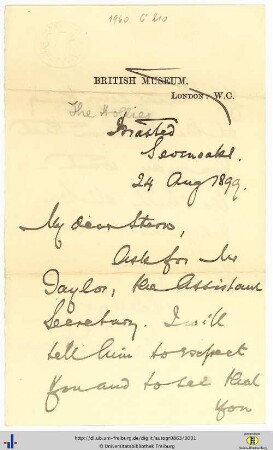 1960 G 210
BRITISH MUSEUM,
LONDON: W.C.
The Hollies
Brasted
Sevenoaks.
24 Aug 1899.
My dear Stern,
Ask for Mr
Taylor, the Assistant
Secretary. I will
tell him to expect
you and to see that
you
http://dl.ub.uni-freiburg.de/diglit/autogr0863/0001
© Universitätsbibliothek Freiburg